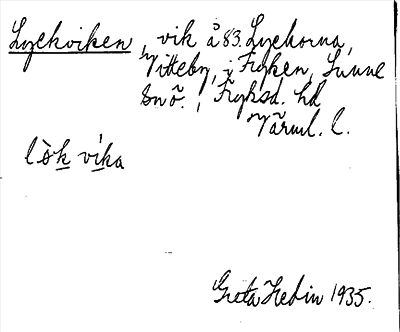 Lyckviken, vik å 83. Lyckorna,
Vitteby, i Fryken, Sunne
sn ö., Fryksd. hd
Värml. l.
lò̀k vika
Greta Hedin 1935.